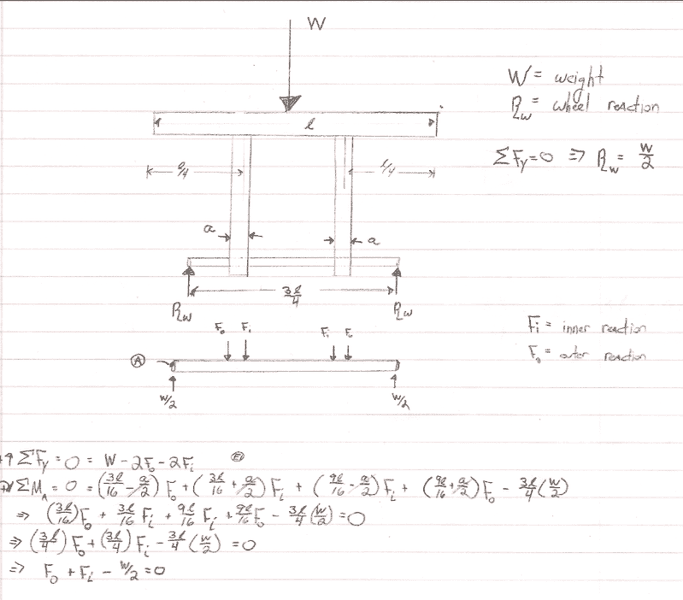 W
W = weight
R_w = wheel reaction
l
ΣFy = 0 ⇒ R_w = W/2
l/4
l/4
a
a
3l/4
R_w
R_w
F_o F_i F_i F_o
F_i = inner reaction
F_o = outer reaction
A
W/2
W/2
+↑ ΣFy = 0 = W - 2F_o - 2F_i
ΣM_A = 0 = (3l/16 - a/2) F_o + (3l/16 + a/2) F_i + (9l/16 - a/2) F_i + (9l/16 + a/2) F_o - 3l/4 (W/2)
⇒ (3l/16) F_o + 3l/16 F_i + 9l/16 F_i + 9l/16 F_o - 3l/4 (W/2) = 0
⇒ (3l/4) F_o + (3l/4) F_i - 3l/4 (W/2) = 0
⇒ F_o + F_i - W/2 = 0